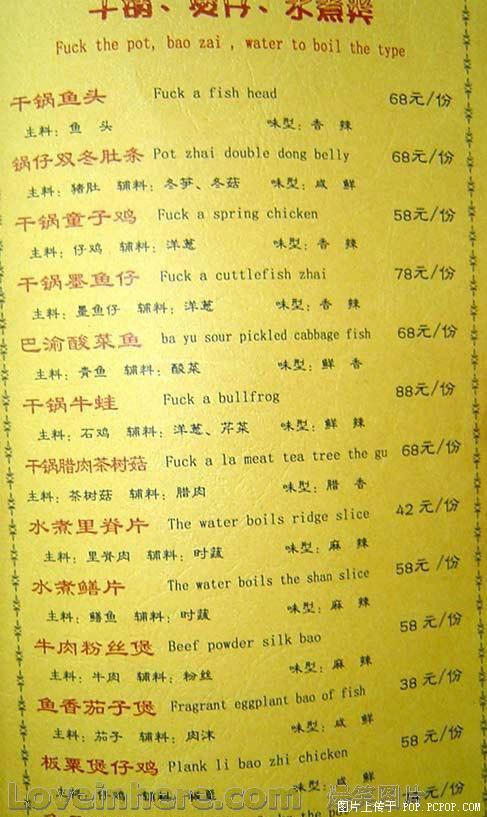 干锅、煲仔、水煮类
Fuck the pot, bao zai , water to boil the type
干锅鱼头 Fuck a fish head 68元/份
主料：鱼 头 味型：香 辣
锅仔双冬肚条 Pot zhai double dong belly 68元/份
主料：猪肚 辅料：冬笋、冬菇 味型：咸 鲜
干锅童子鸡 Fuck a spring chicken 58元/份
主料：仔鸡 辅料：洋葱 味型：香 辣
干锅墨鱼仔 Fuck a cuttlefish zhai 78元/份
主料：墨鱼仔 辅料：洋葱 味型：香 辣
巴渝酸菜鱼 ba yu sour pickled cabbage fish 68元/份
主料：青鱼 辅料：酸菜 味型：鲜 香
干锅牛蛙 Fuck a bullfrog 88元/份
主料：石鸡 辅料：洋葱、芹菜 味型：鲜 辣
干锅腊肉茶树菇 Fuck a la meat tea tree the gu 68元/份
主料：茶树菇 辅料：腊肉 味型：腊 香
水煮里脊片 The water boils ridge slice 42元/份
主料：里脊肉 辅料：时蔬 味型：麻 辣
水煮鳝片 The water boils the shan slice 58元/份
主料：鳝鱼 辅料：时蔬 味型：麻 辣
牛肉粉丝煲 Beef powder silk bao 58元/份
主料：牛肉 辅料：粉丝 味型：麻 辣
鱼香茄子煲 Fragrant eggplant bao of fish 38元/份
主料：茄子 辅料：肉沫 味型：咸 鲜
板栗煲仔鸡 Plank li bao zhi chicken 58元/份
主料：仔鸡 辅料：板栗 味型：咸 鲜
Loveinhere.com 爆笑图片
图片上传于 POP.PCPOP.COM